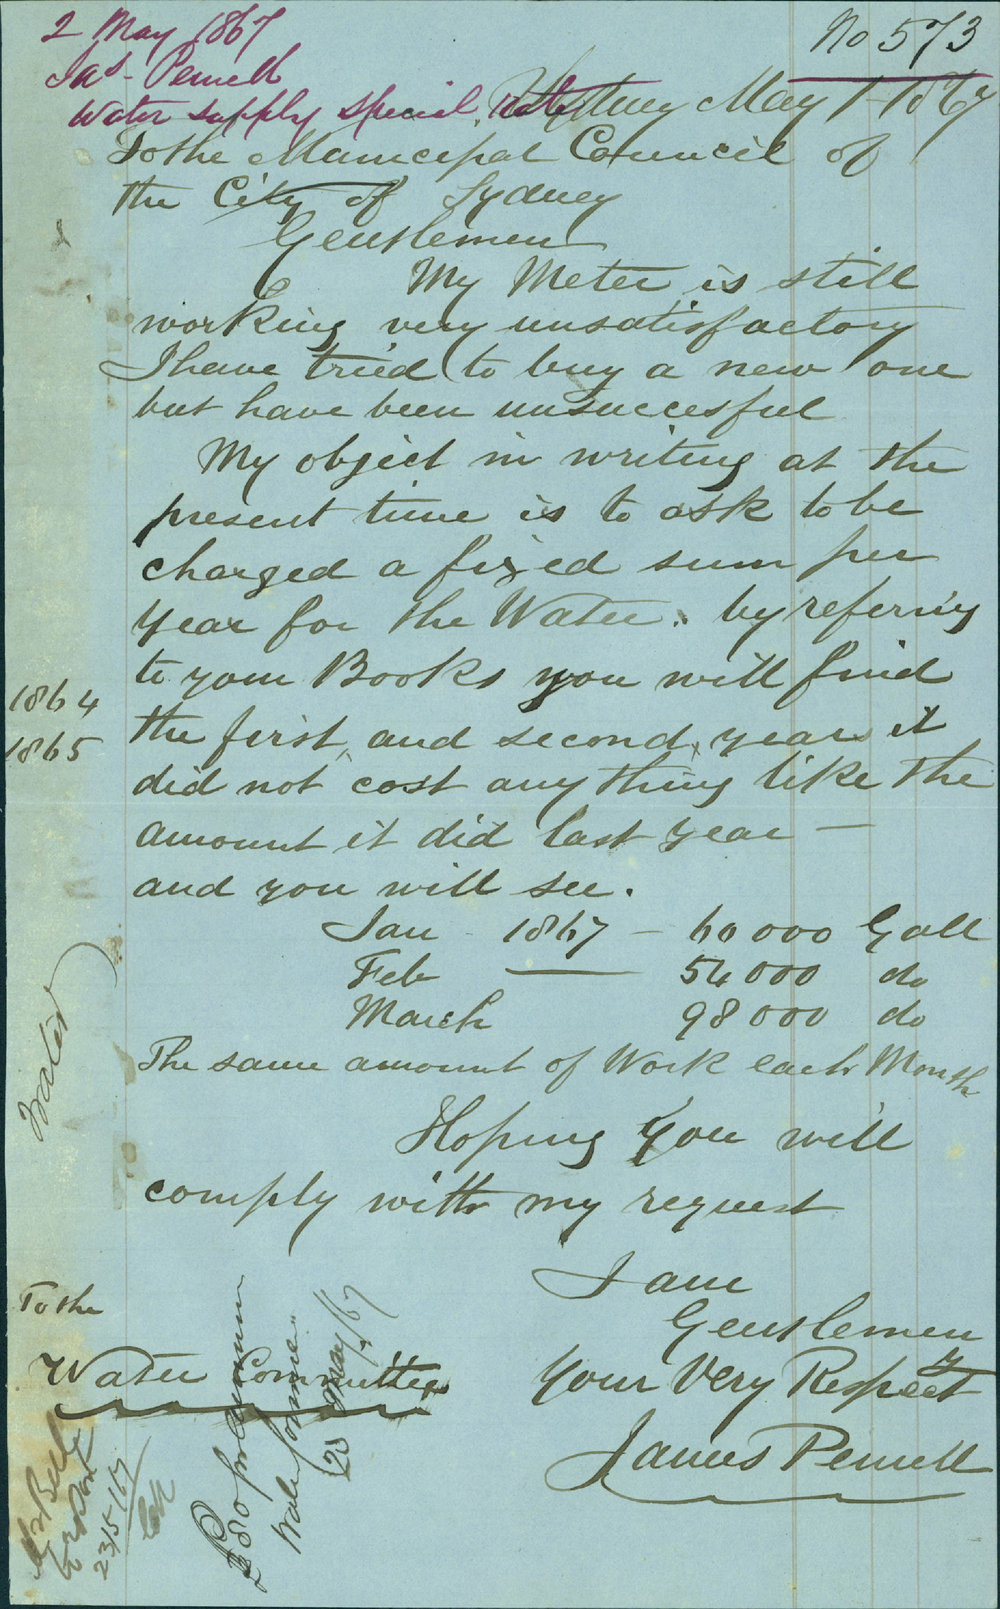 2 May 1867
No 573
Jas Pemell
Water supply special rate
Sydney May 1 1867
To the Municipal Council of
the City of Sydney
Gentlemen
My Meter is still
working very unsatisfactory
I have tried to buy a new one
but have been unsuccesful
My object in writing at the
present time is to ask to be
charged a fixed sum per
year for the Water. by refering
to your Books you will find
1864
the first and second years it
1865
did not cost any thing like the
amount it did last year —
and you will see.
Jan - 1867 - 60000 Gall
Feb — 54000 do
March 98000 do
The same amount of Work each Month
Water
Hoping you will
comply with my request
I am
Gentlemen
Your Very Respecty
James Pemell
To the
Water Committee
£80 per annum
23 May /67
Mr Bell
to report
23/5/67